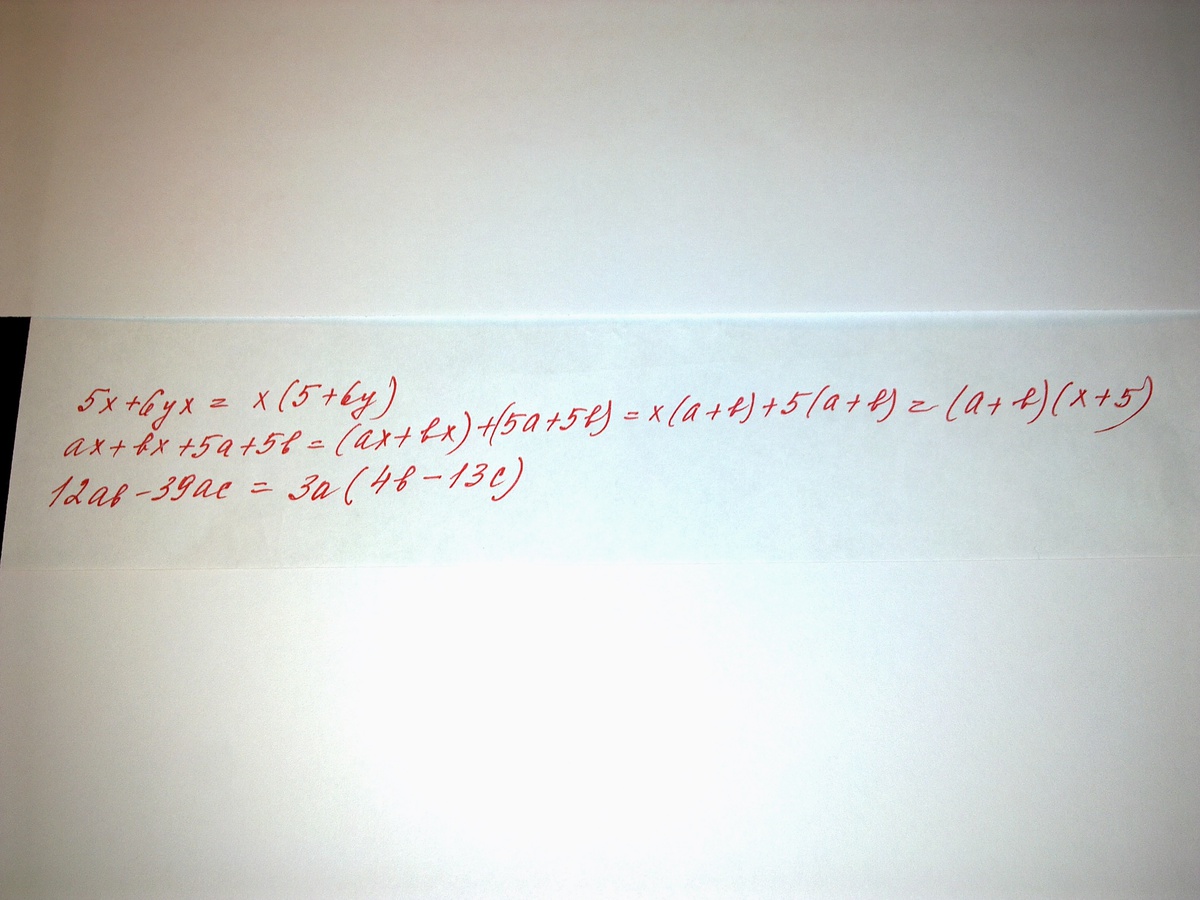 5x+6yx = x(5+6y)
ax+bx+5a+5b = (ax+bx)+(5a+5b) = x(a+b)+5(a+b) = (a+b)(x+5)
12ab-39ac = 3a(4b-13c)